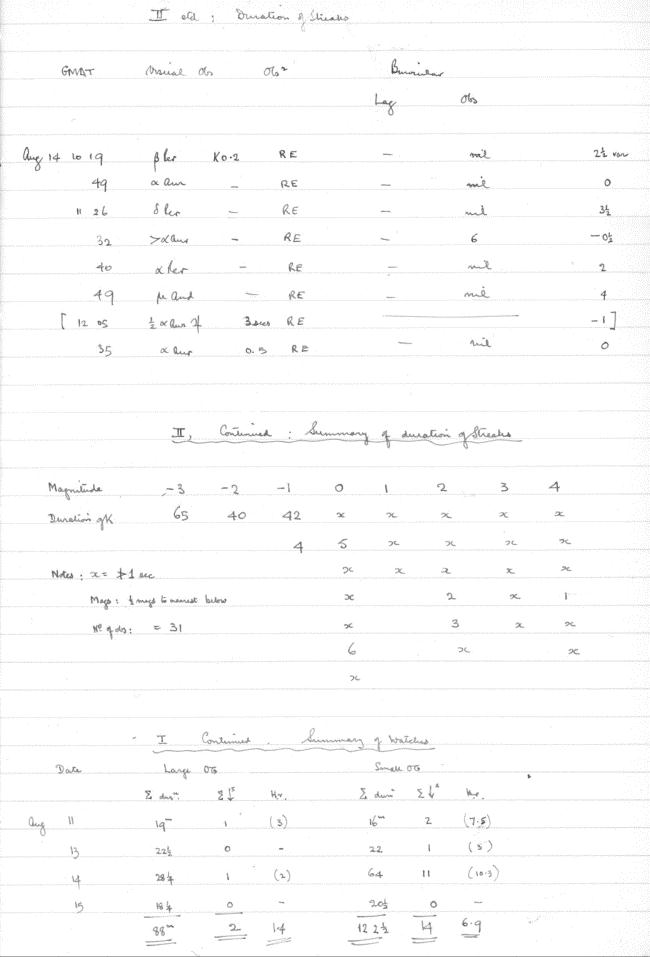 II ctd : Duration of Streaks
GMAT Visual Obs Obs<sup>r</sup> Binocular
Lag Obs
Aug 14 10 19 β Per K0.2 RE — nil 2½ var
49 α Aur — RE — nil 0
11 26 δ Per — RE — nil 3½
32 >α Aur — RE — 6 -0½
40 α Per — RE — nil 2
49 μ And — RE — nil 4
[ 12 05 ½ α Aur ♃ 3 secs RE -1 ]
35 α Aur 0.5 RE — nil 0
II, Continued : Summary of duration of Streaks
Magnitude -3 -2 -1 0 1 2 3 4
Duration of K 65 40 42 x x x x x
4 5 x x x x
Notes : x = ≯ 1 sec x x x x x
Mags : ½ mags to nearest below x 2 x 1
Nº of obs : = 31 x 3 x x
6 x x
x
I Continued . Summary of Watches
Date Large Small
Σ dur<sup>n</sup> Σ Hr. Σ dur<sup>n</sup> Σ Hr.
Aug 11 19<sup>m</sup> 1 (3) 16<sup>m</sup> 2 (7.5)
13 22½ 0 - 22 1 (3)
14 28¼ 1 (2) 64 11 (10.3)
15 18¼ 0 - 20½ 0 —
88<sup>m</sup> 2 1.4 122½ 14 6.9